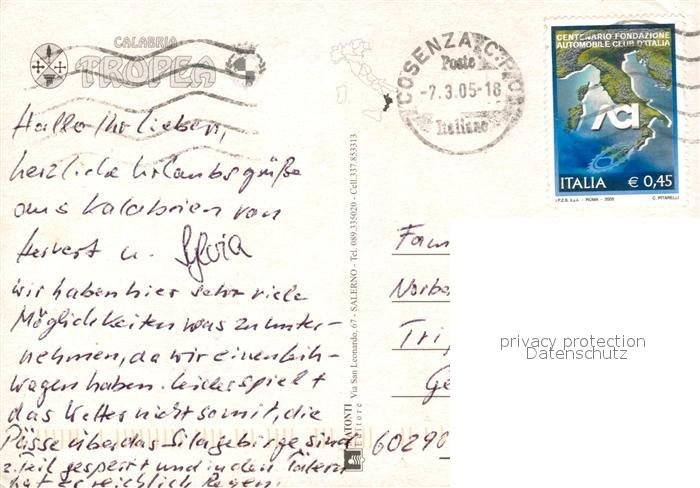 CALABRIA
TROPEA
Hallo Ihr Lieben,
herzliche Urlaubsgrüße
aus Kalabrien von
Herbert u. Sylvia
wir haben hier sehr viele
Möglichkeiten was zu unter-
nehmen, da wir einen Leih-
wagen haben. Leider spielt
das Wetter nicht so mit, die
Pässe über das Silagebirge sind
z. Teil gesperrt und in den Tälern
hat es reichlich Regen.
Editore Via San Leonardo, 67 - SALERNO - Tel. 089.335020 - Cell. 337.853313
COSENZA C.P.O.
Poste
-7.3.05-18
Italiane
CENTENARIO FONDAZIONE
AUTOMOBILE CLUB D'ITALIA
ACI
ITALIA € 0,45
I.P.Z.S. S.p.A. - ROMA - 2005 C. PITARELLI
Fam
Norbe
Tri
Ge
60290
privacy protection
Datenschutz